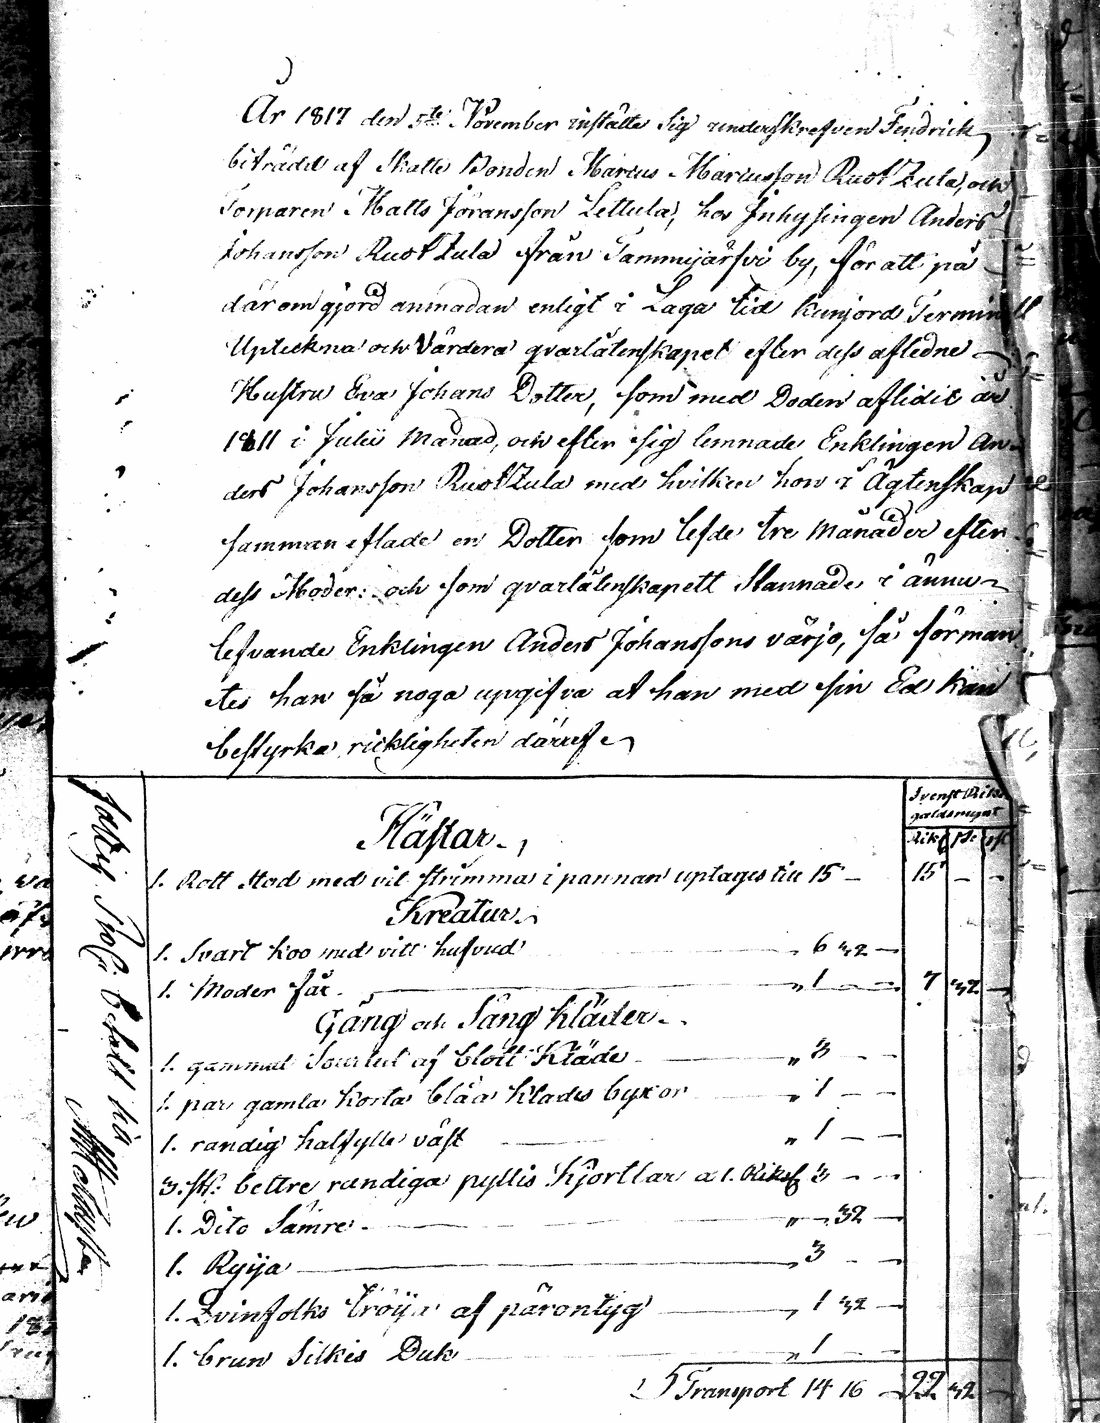 År 1817 den 5te November instälte sig underskrefven Fendrick
biträdd af Skatte Bonden Marcus Marcusson Ruotzula, och
Torparen Matts Jöransson Lettula, hos Inhysingen Anders
Johansson Ruotzula från Tammijärfvi by, för att på
därom gjord anmadan enligt i Laga tid kunjord Termin
Upteckna och Värdera qvarlåtenskapet efter dess afledne
Hustru Eva Johans Dotter, som med Döden aflidit år
1811 i Julii Månad, och efter sig lemnade Enklingen An-
ders Johansson Ruotzula med hvilken hon i Ägtenskap
samman aflade en Dotter som lefde tre Månader efter
dess Moder: och som qvarlåtenskapett Stannade i ännu
lefvande Enklingen Anders Johanssons värjo, så förman
tes han så noga upgifva at han med sin Ed kan
bestyrka ricktigheten däraf
Svenst Riks
gäldsmynt
Hästar
Riksd sk: rst
1. Rott Stod med vit strimma i pannan uptages till 15 — 15 — —
Kreatur
1. Svart Koo med vitt hufvud 6 32 —
1. Moder Får „ 1 — — 7 32 —
Gång och Säng Kläder
1. gammal Sourtut af blott Kläde „ 3 — —
1. par gamla korta blåa klädes byxor „ 1 — —
1. randig halfylle väst „ 1 — —
3. st: bettre randiga yllis Kjortlar a 1. Riksd 3 — —
1. Dito Sämre „ — 32 —
1. Ryija „ 3 — —
1. Qvinfolks tröija af päronlyg „ 1 32 —
1. brun Silkis Duk „ 1 — —
Transport 14 16 — 22 32 —